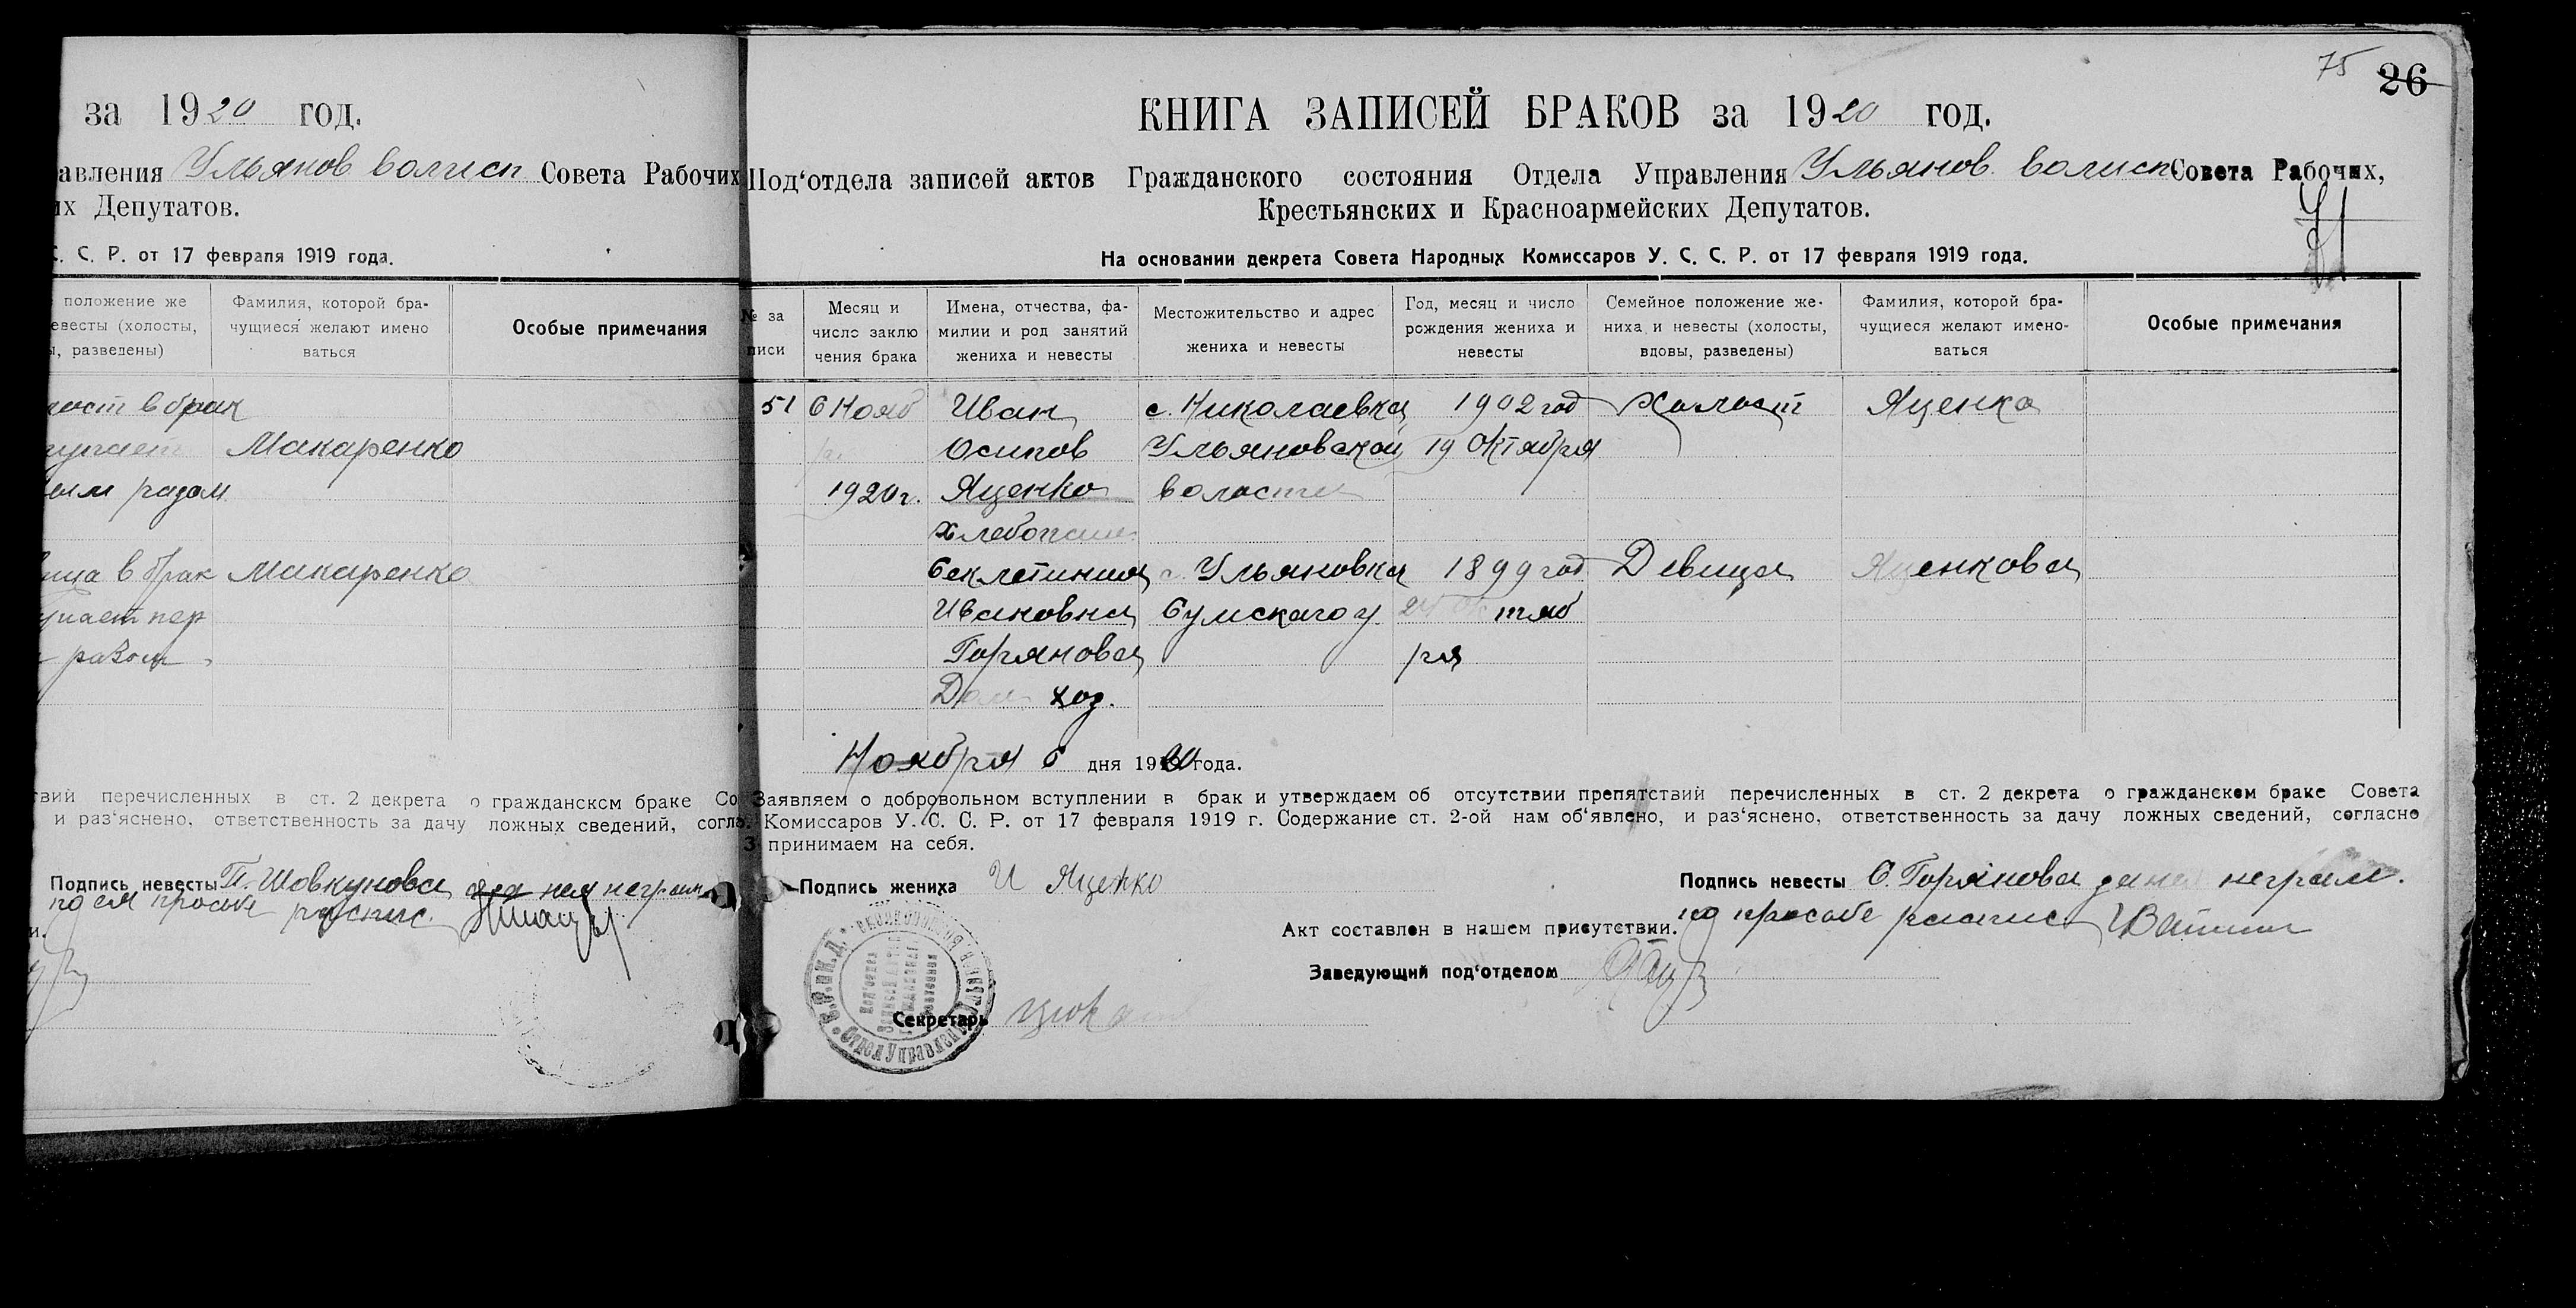 за 1920 год.
авления Ульянов волисп Совета Рабочих
их Депутатов.
С. С. Р. от 17 февраля 1919 года.
положение же
евесты (холосты,
ы, разведены)
Фамилия, которой бра-
чущиеся желают имено
ваться
Особые примечания
лост в брак
тупает Макаренко
вым разом
вица в брак Макаренко
упает пер
разом
твий перечисленных в ст. 2 декрета о гражданском браке Со
и раз'яснено, ответственность за дачу ложных сведений, согла
Подпись невесты П. Шовкунова а за нея неграм
по ея просьбе распис.
и.
75 26
КНИГА ЗАПИСЕЙ БРАКОВ за 1920 год.
Под'отдела записей актов Гражданского состояния Отдела Управления Ульянов. волисп Совета Рабочих,
Крестьянских и Красноармейских Депутатов.
На основании декрета Совета Народных Комиссаров У. С. С. Р. от 17 февраля 1919 года.
№ за
писи
Месяц и
число заклю
чения брака
Имена, отчества, фа-
милии и род занятий
жениха и невесты
Местожительство и адрес
жениха и невесты
Год, месяц и число
рождения жениха и
невесты
Семейное положение же-
ниха и невесты (холосты,
вдовы, разведены)
Фамилия, которой бра-
чущиеся желают имено-
ваться
Особые примечания
51 6 Нояб Иван с. Николаевка 1902 год Холост Яценко
Осипов Ульяновской 19 Октября
1920 г. Яценко волости
хлебопаш.
Секлетиния с. Ульяновка 1899 год Девица Яценкова
Ивановна Сумскаго у 24 Октяб
Горянова ря
Дом хоз.
Ноября 6 дня 1920 года.
Заявляем о добровольном вступлении в брак и утверждаем об отсутствии препятствий перечисленных в ст. 2 декрета о гражданском браке Совета
Комиссаров У. С. С. Р. от 17 февраля 1919 г. Содержание ст. 2-ой нам об'явлено, и раз'яснено, ответственность за дачу ложных сведений, согласно
3 принимаем на себя.
Подпись жениха И Яценко
Подпись невесты С. Горянова неграм.
по просьбе распис
Акт составлен в нашем присутствии.
Заведующий под'отделом
Секретарь
Отдел Управления